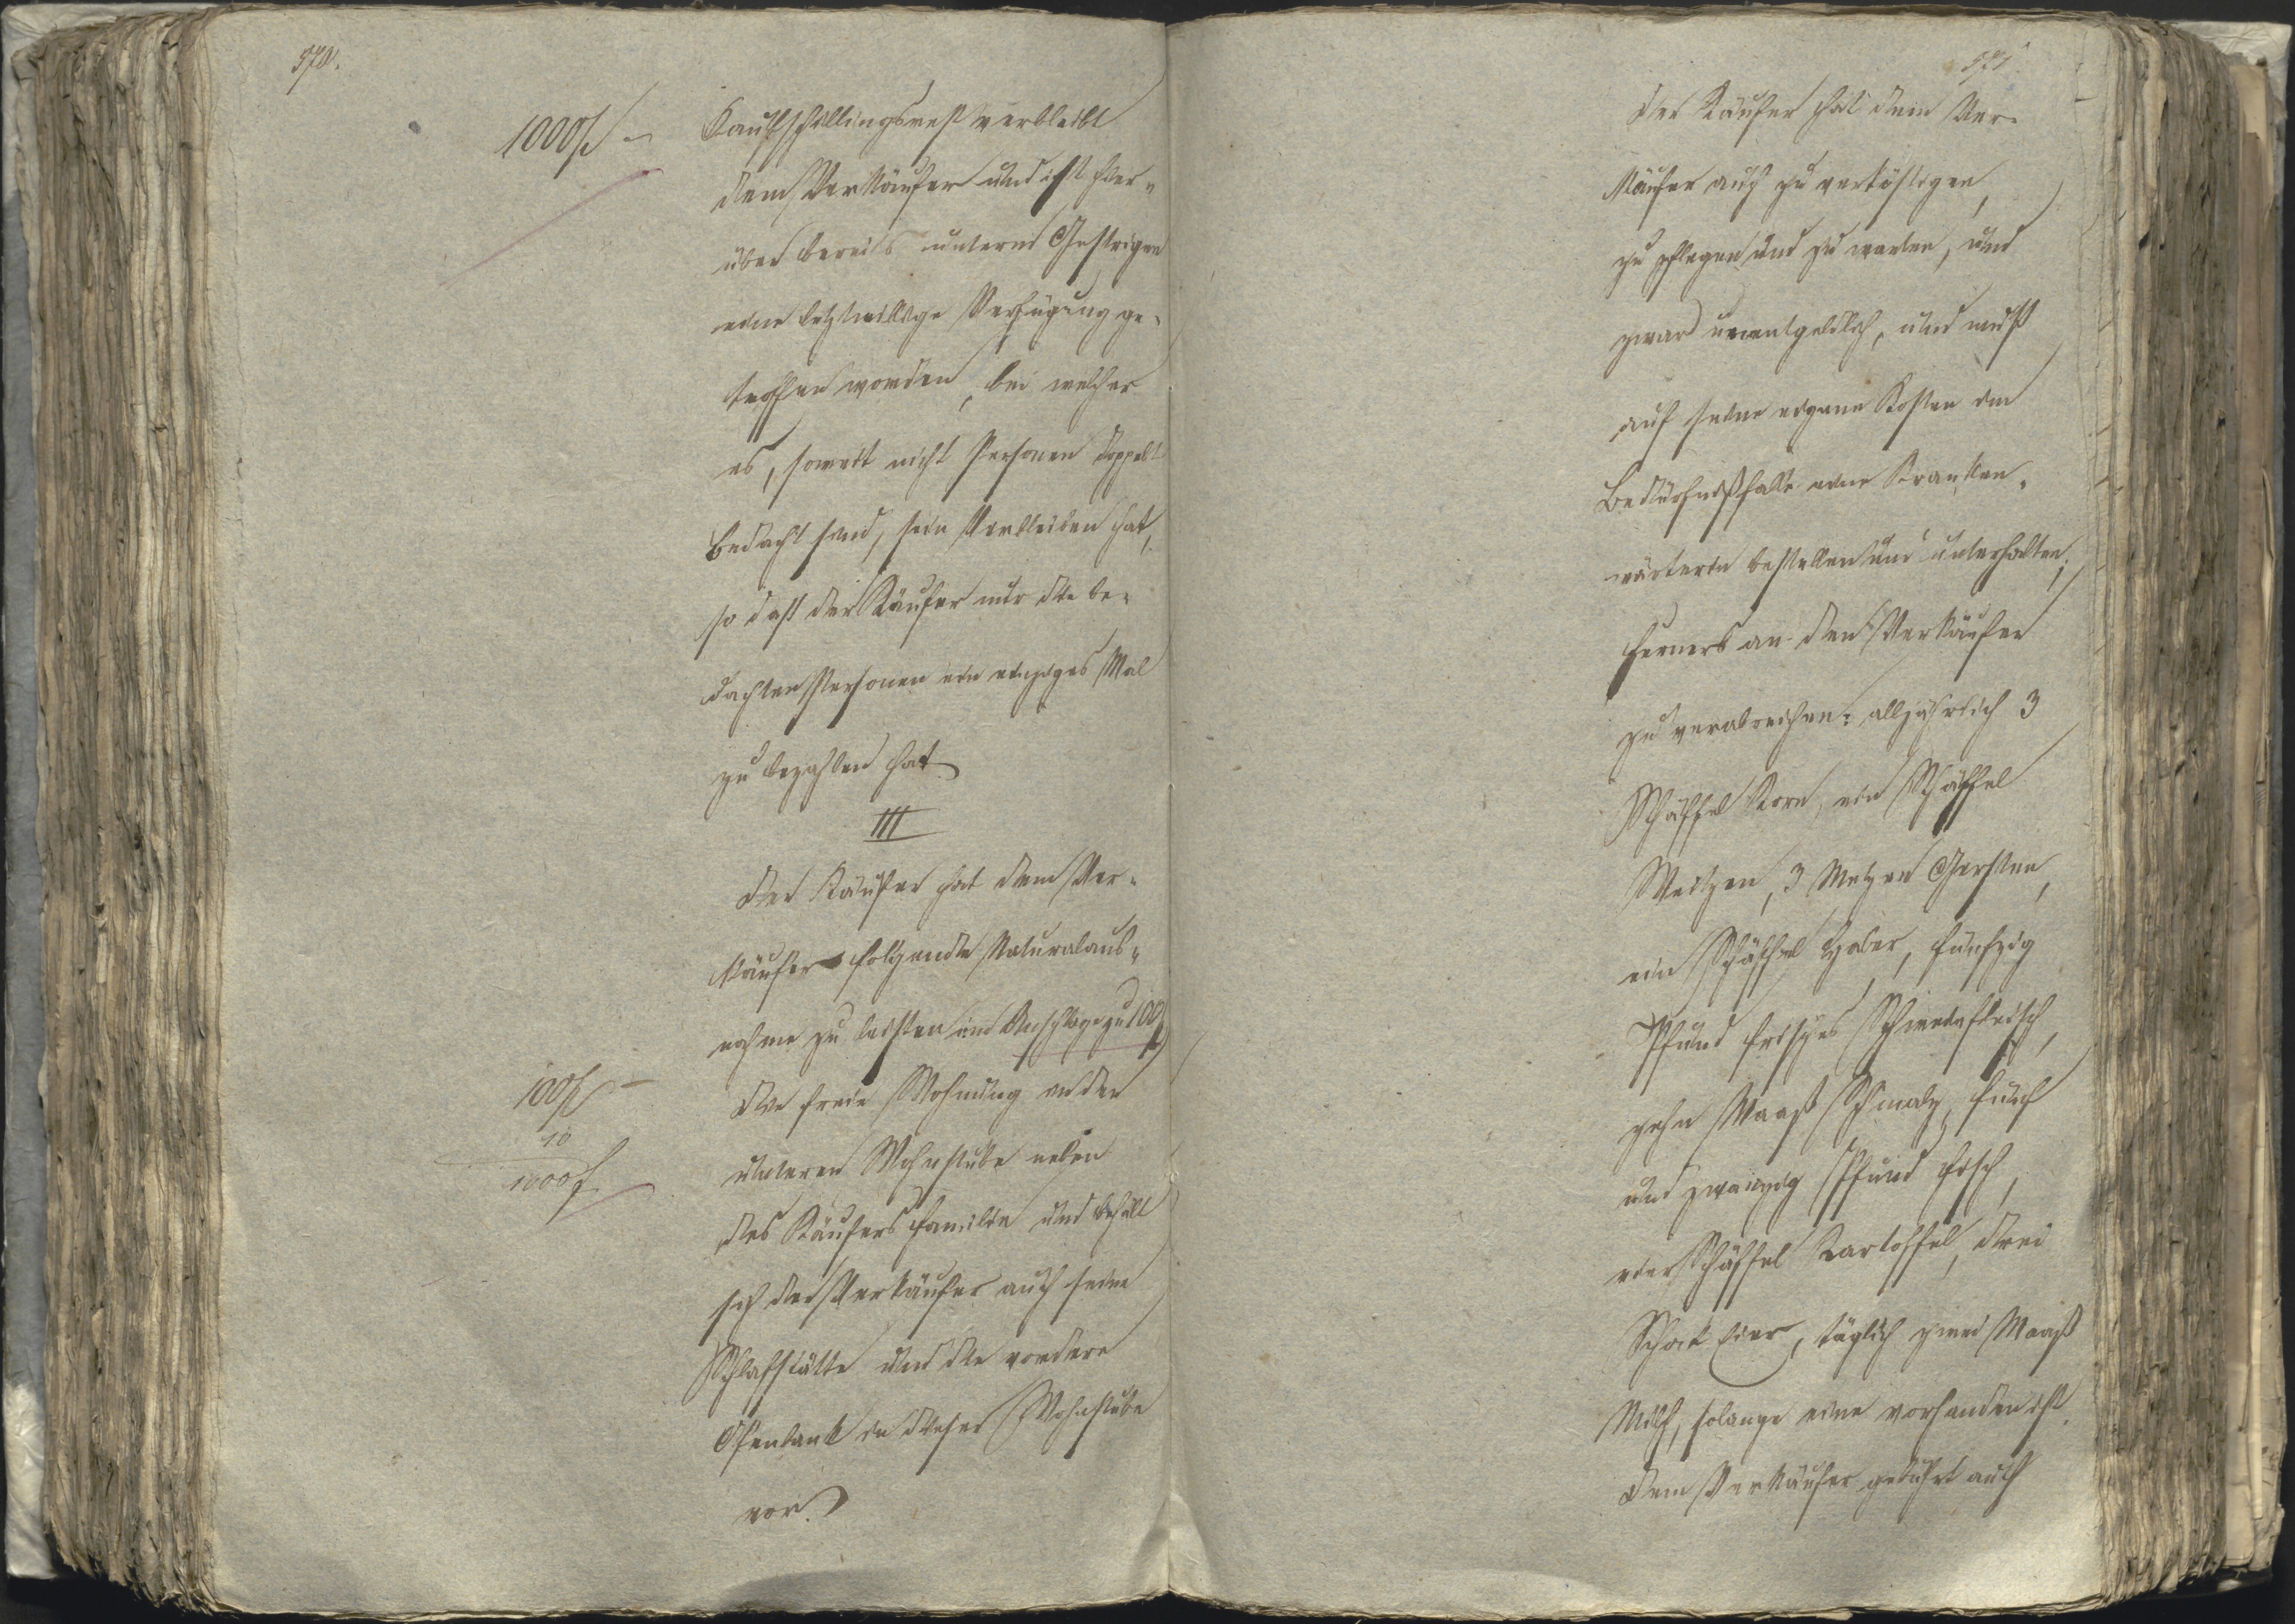 570.
1000f –
Kaufschillingsrest verbleibt
dem Verkäufer und ist hier-
über bereits unterm Gestrigen
eine letztwillige Verfügung ge-
troffen worden, bei welcher
es, soweit nicht Personen doppelt
bedacht sind, sein Verbleiben hat,
so daß der Käufer nur die be-
dachten Personen ein einziges Mal
zu bezahlen hat.
III
Der Käufer hat dem Ver-
käufer folgende Naturalaus-
nahme zu leisten im Anschlage zu 100f
100f –
10
1000f
Die freie Wohnung in der
unteren Wohnstube neben
des Käufers Familie und behält
sich der Verkäufer auch seine
Schlafstätte und die vordere
Ofenbank in dieser Wohnstube
vor.
571
Der Käufer hat dem Ver-
käufer auch zu verköstigen,
zu pflegen und zu warten, und
zwar unentgeldlich, und muß
auf seine eigene Kosten im
Bedürfnißfalle eine Kranken-
wärterin bestellen und unterhalten,
ferners an den Verkäufer
zu verabreichen: alljährlich 3
Schäffel Korn, ein Schäffel
Waitzen, 3 Metzen Gersten,
ein Schäffel Haber, fünfzig
Pfund frisches Schweinfleisch,
zehn Maaß Schmalz, fünf
und zwanzig Pfund Fisch,
vier Schäffel Kartoffel, drei
Schock Eier, täglich zwei Maaß
Milch, solange eine vorhanden ist.
Dem Verkäufer gebührt auch